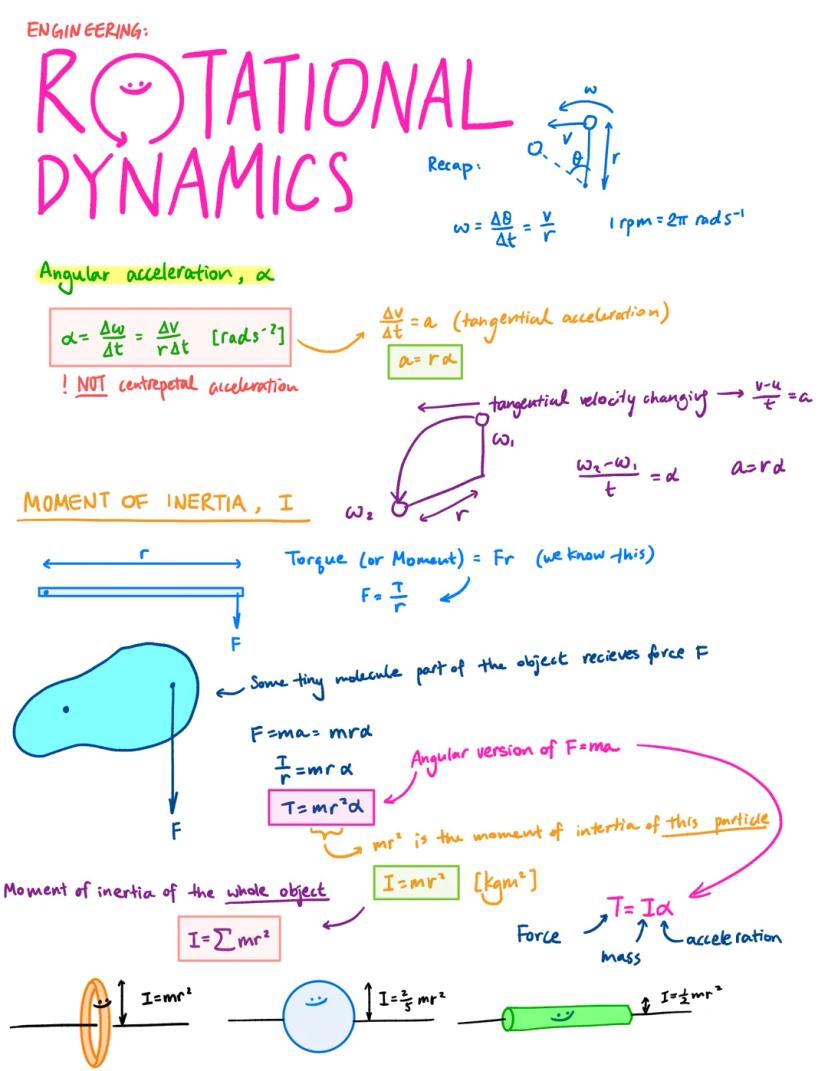 ENGINEERING:
ROTATIONAL
DYNAMICS
Recap:
ω
v
θ
r
ω = Δθ/Δt = v/r
1 rpm = 2π rads⁻¹
Angular acceleration, α
α = Δω/Δt = Δv/rΔt [rads⁻²]
Δv/Δt = a (tangential acceleration)
a = rα
! NOT centrepetal acceleration
tangential velocity changing → v-u/t = a
ω₁
ω₂-ω₁/t = α
a = rα
ω₂
r
MOMENT OF INERTIA, I
r
F
Torque (or Moment) = Fr (we know this)
F = T/r
Some tiny molecule part of the object recieves force F
F
F = ma = mrα
I/r = mrα
T = mr²α
Angular version of F=ma
mr² is the moment of intertia of this particle
I = mr² [kgm²]
Moment of inertia of the whole object
I = ∑mr²
T = Iα
Force
mass
acceleration
I = mr²
I = 2/5 mr²
I = 1/2 mr²